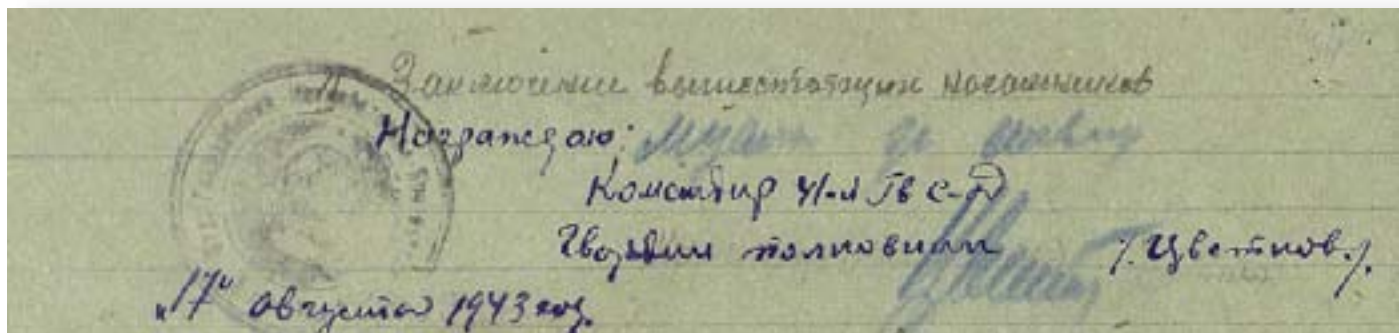 Заключение вышестоящих начальников
Награждаю:
Командир 41-й Гв с-д
Гвардии полковник /. Цветков./.
"17" августа 1943 год.